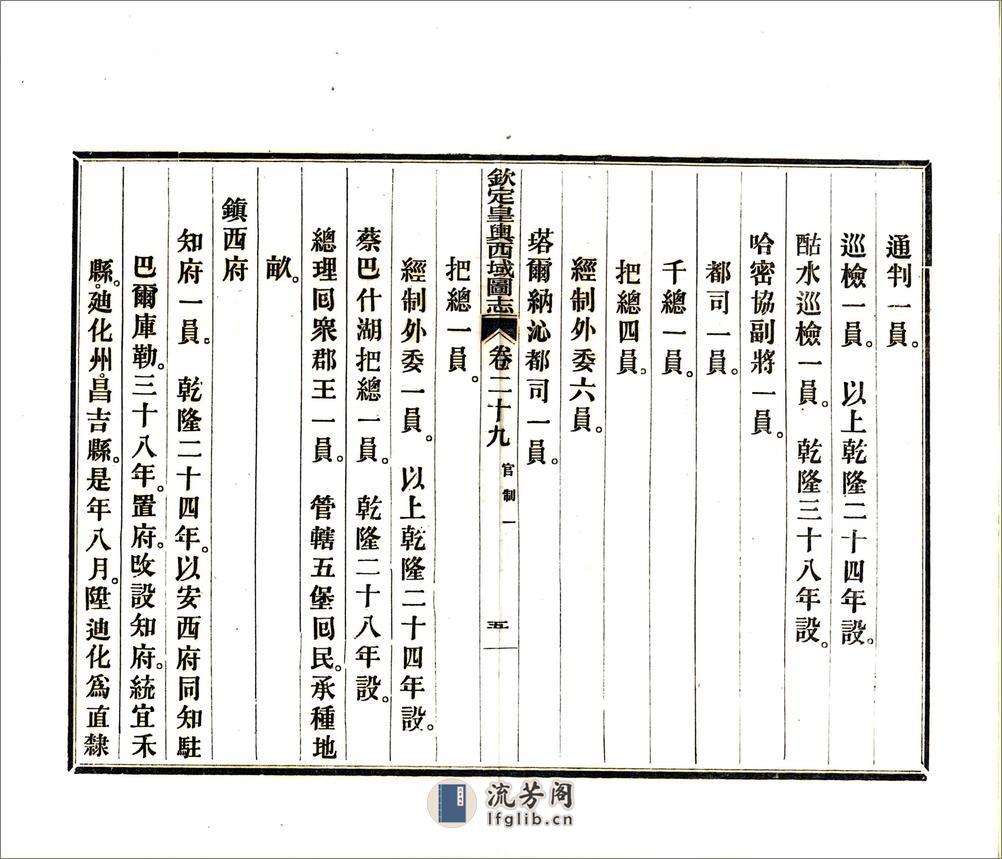 通判一員。
巡檢一員。 以上乾隆二十四年設。
酤水巡檢一員。 乾隆三十八年設。
哈密協副將一員。
都司一員。
千總一員。
把總四員。
經制外委六員。
塔爾納沁都司一員。
欽定皇輿西域圖志 卷二十九 官制一 五
把總一員。
經制外委一員。 以上乾隆二十四年設。
蔡巴什湖把總一員。 乾隆二十八年設。
總理回衆郡王一員。 管轄五堡回民。承種地
畝。
鎮西府
知府一員。 乾隆二十四年。以安西府同知駐
巴爾庫勒。三十八年。置府。改設知府。統宜禾
縣。廸化州。昌吉縣。是年八月。陞廸化爲直隸
流芳阁
lfglib.cn